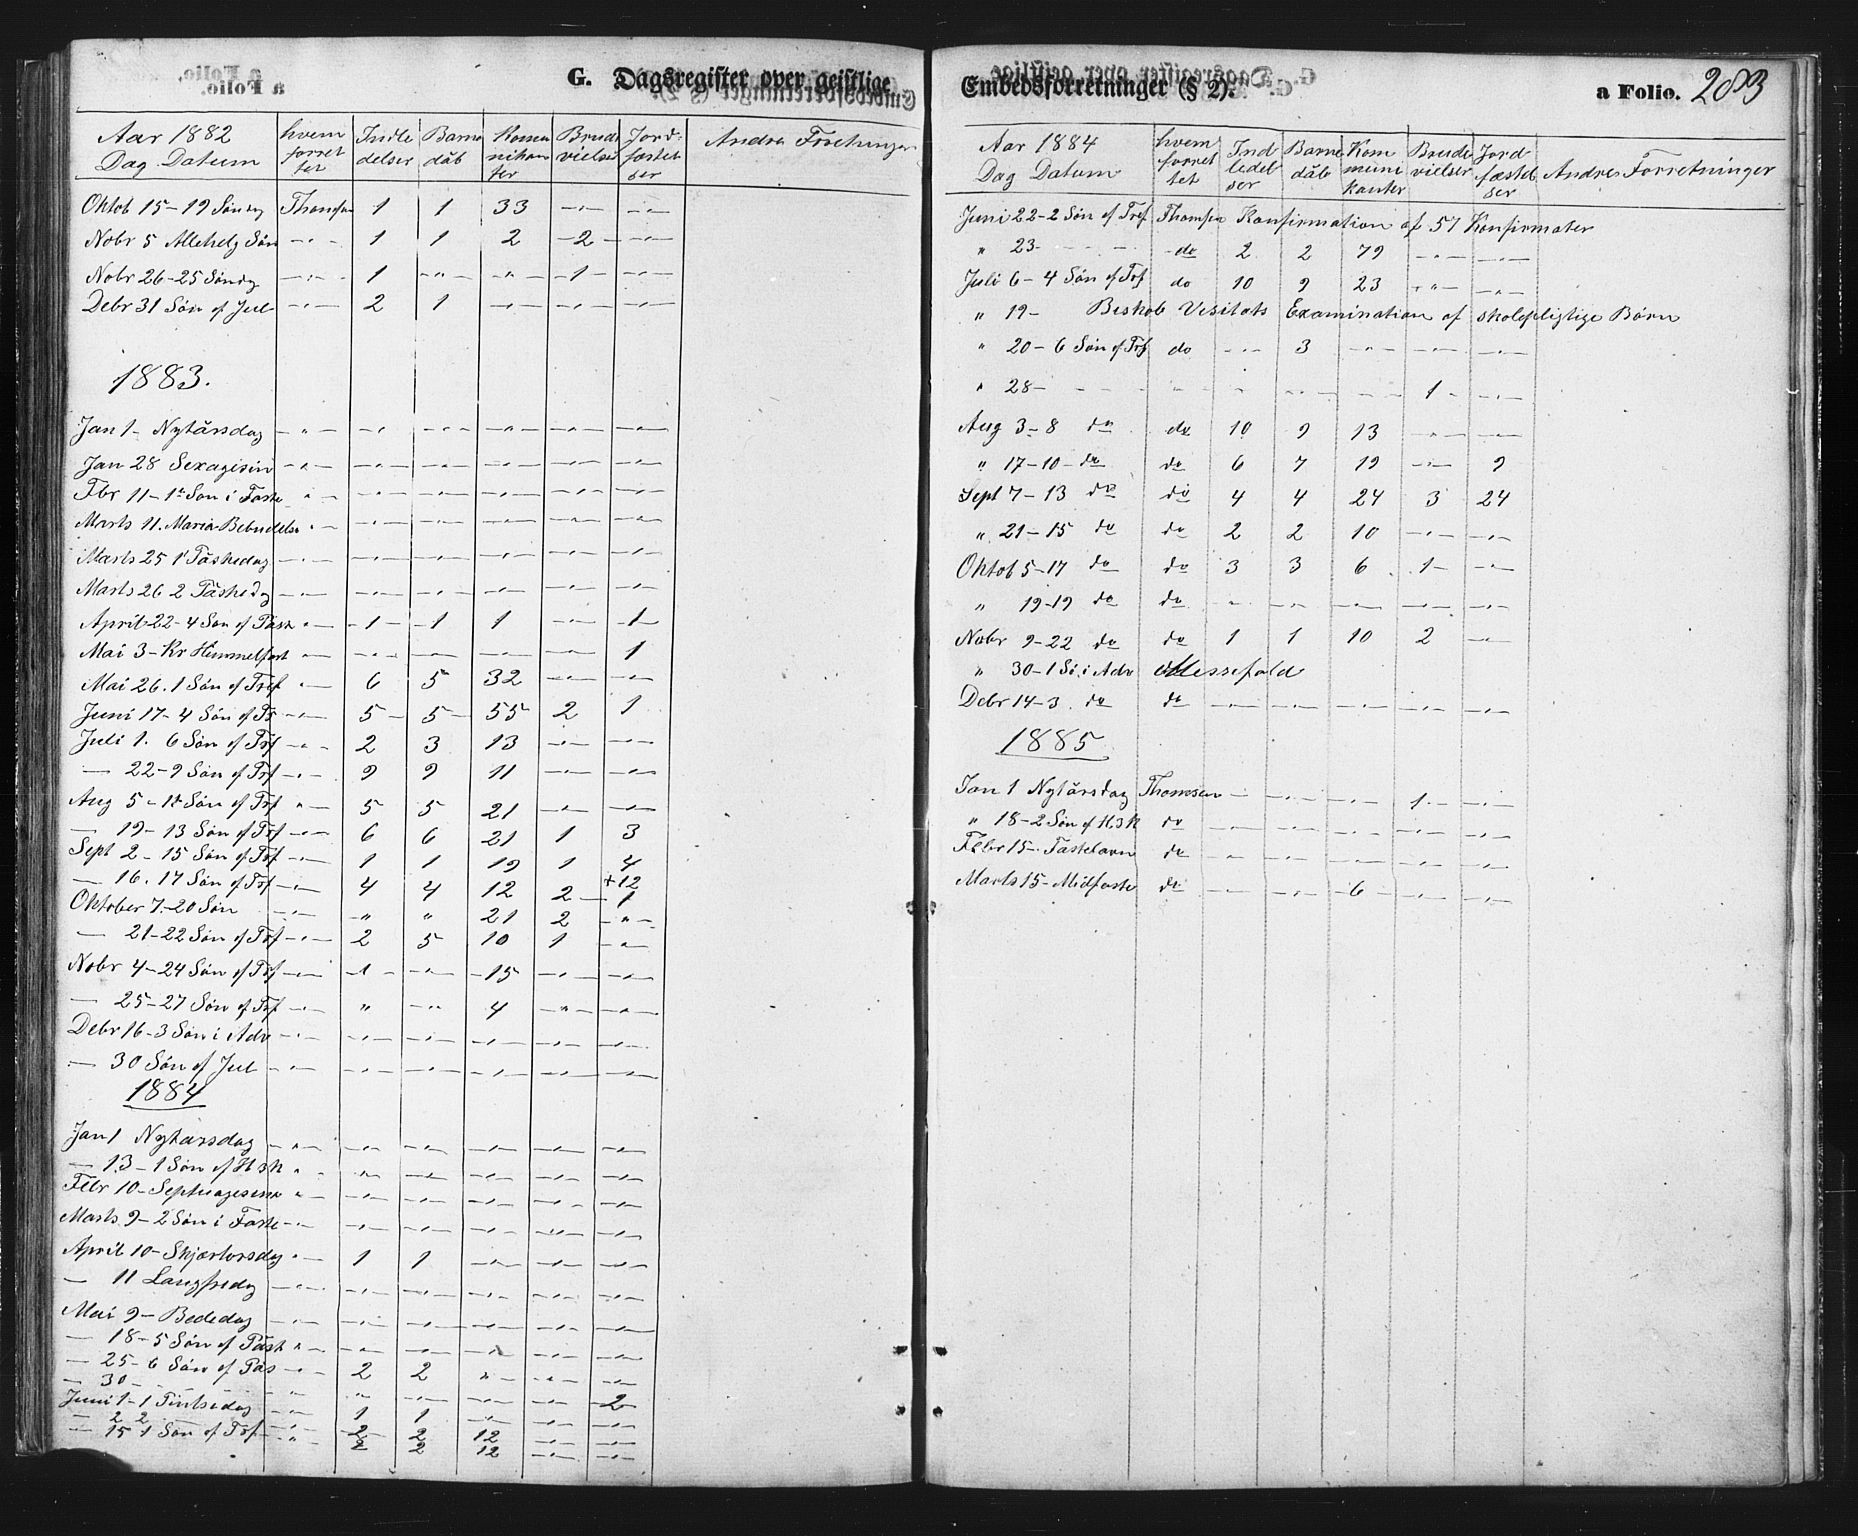 G. Dagsregister over geistlige
Aar 1882 Dag Datum | hvem forret tet | Indle delser | Barne dåb | Komu nikan ter | Brude vielser | Jord- fæstel ser | Andre Forretninger
Oktob 15-19 Søndag Thomsen 1 1 33 -"- -"-
Nobr 5 Allehelg Søn -"- 1 1 2 -2- -"-
Nobr 26-25 Søndg -"- 1 -"- -"- -1- -"-
Debr 31 Søn ef Jul -"- 2 1 -"- -"- -"-
1883.
Jan 1- Nytårsdag -"- -"- -"- -"- -"- -"-
Jan 28 Sexagisin -"- -"- -"- -"- -"- -"-
Fbr 11-1ste Søn i Faste " -"- -"- -"- -"- -"-
Marts 11. Maria Bebudelse "- -"- -"- -"- -"- -"-
Marts 25 1 Påskedag -"- -"- -"- -"- -"- -"-
Marts 26 2 Påskedg -"- -"- -"- -"- -"- -"-
April 22-4 Søn ef Påsk "- -1- -1 1 -"- -1-
Mai 3- Kr Himmelfart "- -"- -"- -"- -"- 1
Mai 26. 1 Søn ef Tref "- 6 5 32 -"- -"-
Juni 17-4 Søn ef Tr -"- 5- 5- 55 2 1
Juli 1. 6 Søn ef Trf -"- 2 3 13 -"- -"-
— 22-9 Søn ef Trf -"- 9 9 11 -"- -"-
Aug 5-11 Søn ef Trf "- 5 5 21 -"- -"-
— 19-13 Søn ef Trf -"- 6 6 21 1 3
Sept 2-15 Søn ef Trf -"- 1 1 19 1 4
— 16. 17 Søn ef Trf -"- 4 4 12 2 +12 1
Oktober 7-20 Søn -"- -" " 21 2 -"-
— 21-22 Søn ef Trf -"- 2 5 10 1 -"-
Nobr 4-24 Søn ef Trf -"- -1- -"- -15 -"- -"-
— 25-27 Søn ef Trf -"- " -"- 4 "- -"-
Debr 16-3 Søn i Adv -"- -"- -"- -"- -"- -"-
— 30 Søn ef Jul -"- -"- -"- -"- -"- -"-
1884
Jan 1 Nytårsdag -"- -"- -"- -"- -"- -"-
— 13-1 Søn ef H3K " -"- -"- -"- -"- -"-
Febr 10-Septuagesima "- -"- -"- -"- -"- -"-
Marts 9-2 Søn i Faste -"- -"- -"- -"- -"- -"-
April 10-Skjærtorsdag "- 1 1 -"- -"- -"-
— 11 Langfredag -"- -"- -"- -"- -"- -"-
Mai 9- Bededag -"- -"- -"- -"- -"- -"-
— 18-5 Søn ef Påsk "- -"- -"- -"- -"- -"-
— 25-6 Søn ef Pås -"- 2 2 "- -"- -"-
— 30- -"- -"- -"- -"- -"- -2-
Juni 1-1 Pintsedag -"- 1 1 -"- -"- -"-
— 2 2 -"- -2- 2 12 -"- -"-
— 15 1 Søn ef Trf -"- 2 2 12 -"- -"-
Embedsforretninger (§ 2).
a Folio. 203
Aar 1884 Dag Datum | hvem forret tet | Ind ledel ser | Barne dåb | Kom muni kanter | Brude vielser | Jord fæstel ser | Andres Forretninger
Juni 22-2 Søn ef Tref Thomsen Konfirmation af 57 Konfirmater
" 23- - - - do 2 2 79 -"- -"-
Juli 6-4 Søn ef Trf do 10 9 23 -"- -"-
" 19- Biskob Visitats Examination af skolepligtige Børn
" 20-6 Søn ef Trf do -"- 3 -"- -"- -"-
" 28- - - - -"- -"- -"- -"- 1 -"-
Aug 3-8 do do 10 9 13 -"- -"-
" 17-10-do do 6 7 19 -"- 9
Sept 7-13 do do 4 4 24 3 24
" 21-15 do do 2 2 10 -"- -"-
Oktob 5-17 do do 3 3 6 1- -"-
" 19-19 do do -"- -"- -"- -"- -"-
Nobr 9-22 do do 1 1 10 2 -"-
" 30-1 Sø. i Adv Messefald
Debr 14-3. do do -"- -"- -"- -"- -"-
1885
Jan 1 Nytårsdag Thomsen -"- -"- -"- 1- -"-
" 18-2 Søn ef H3K do -"- -"- -"- -"- -"-
Febr 15-Fastelavn do -"- -"- -"- -"- -"-
Marts 15-Midfaste do -"- -"- -6- -"- -"-